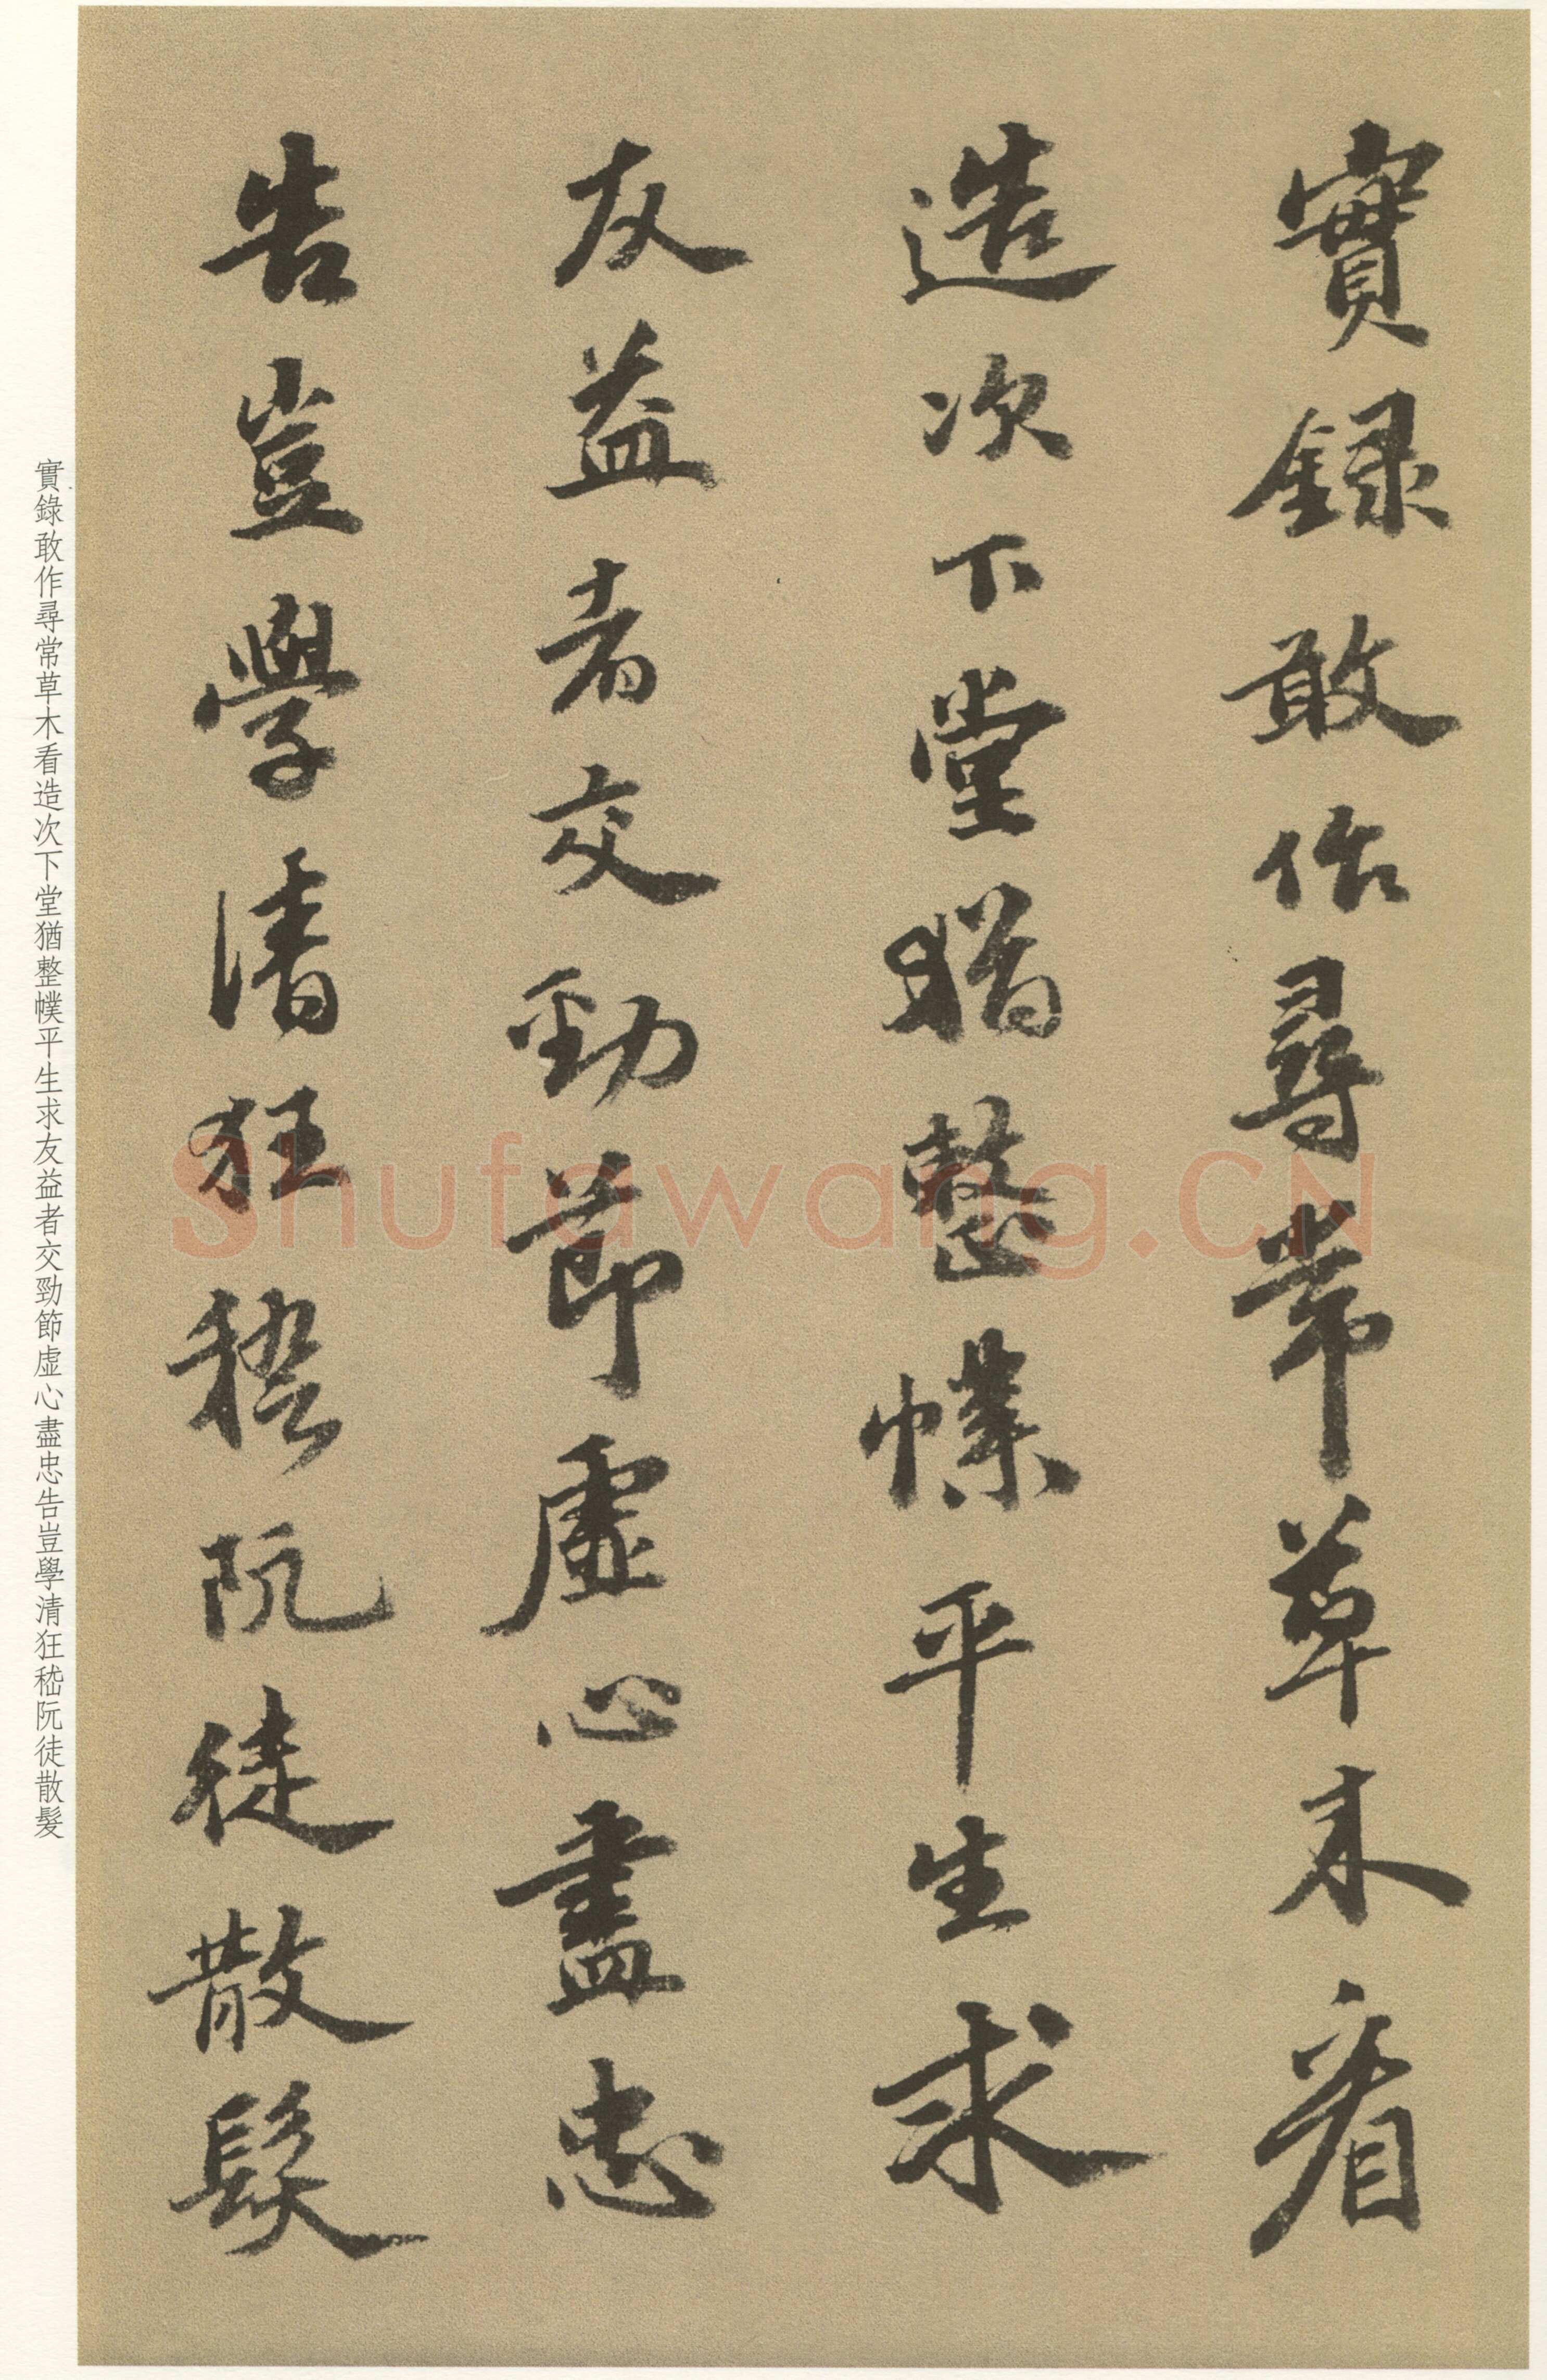 實録敢作尋常草木看
造次下堂猶整幞平生求
友益者交勁節虛心盡忠
告豈學清狂嵇阮徒散髮
實錄敢作尋常草木看造次下堂猶整幞平生求友益者交勁節虛心盡忠告豈學清狂嵇阮徒散髮
Shufawang.CN